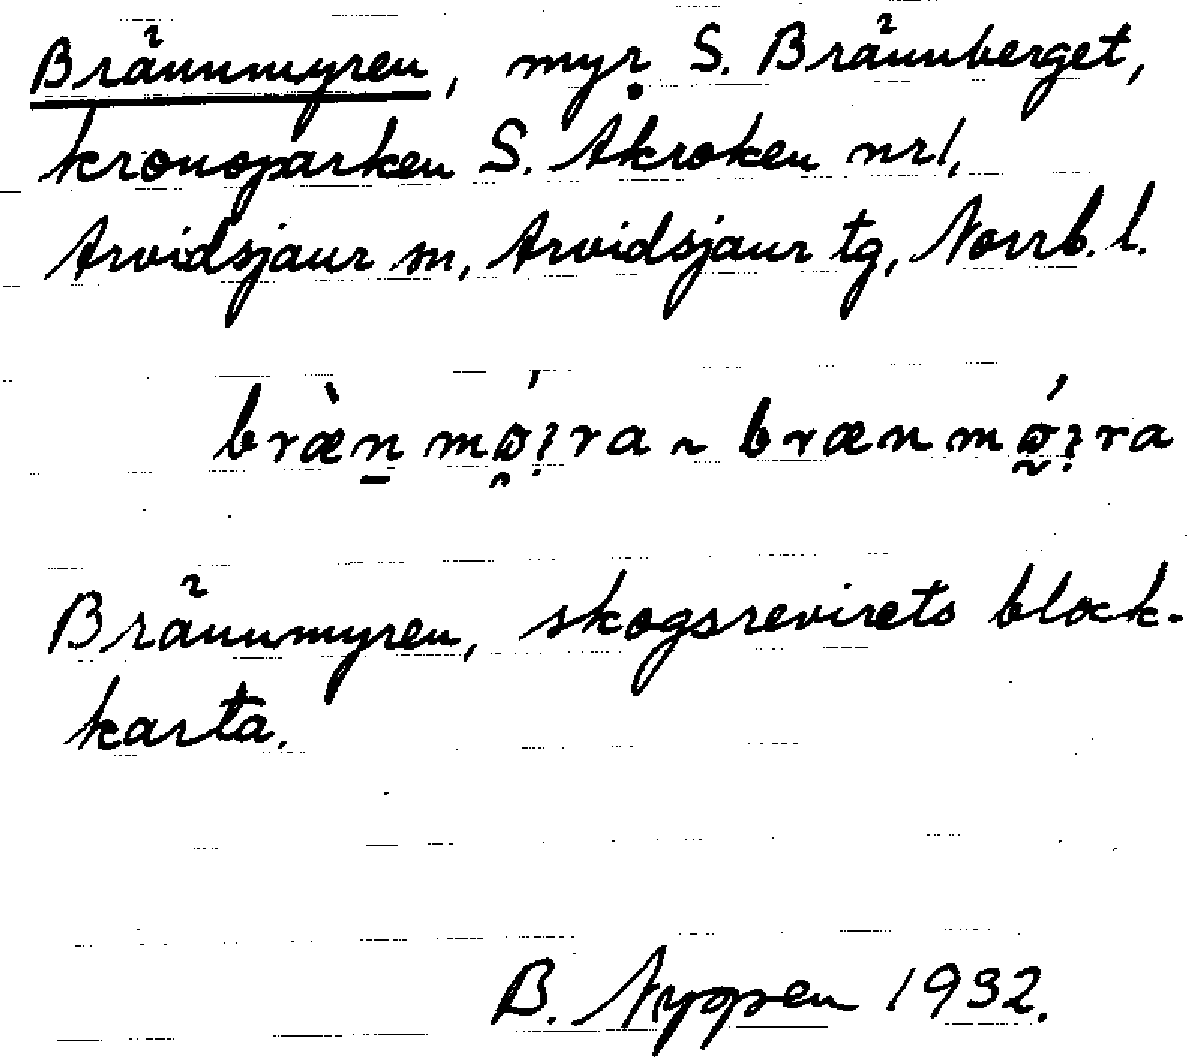 Brännmyren, myr S. Brännberget,
kronoparken S. Åkroken nr 1,
Arvidsjaur sn, Arvidsjaur tg, Norrb. l.
Brännmyren, skogsrevirets block-
karta.
B. 1932.